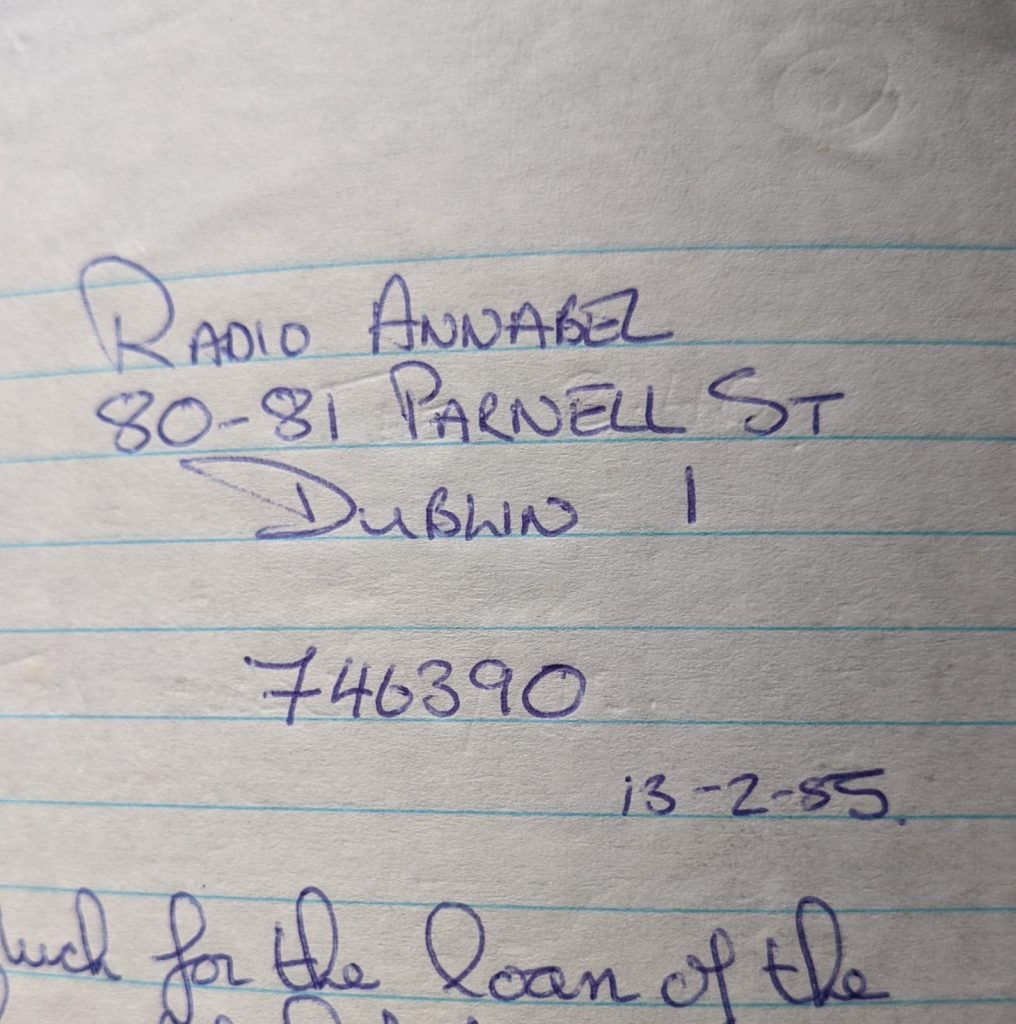 RADIO ANNABEL
80-81 PARNELL ST
DUBLIN 1
746390
13-2-85.
for the loan of the